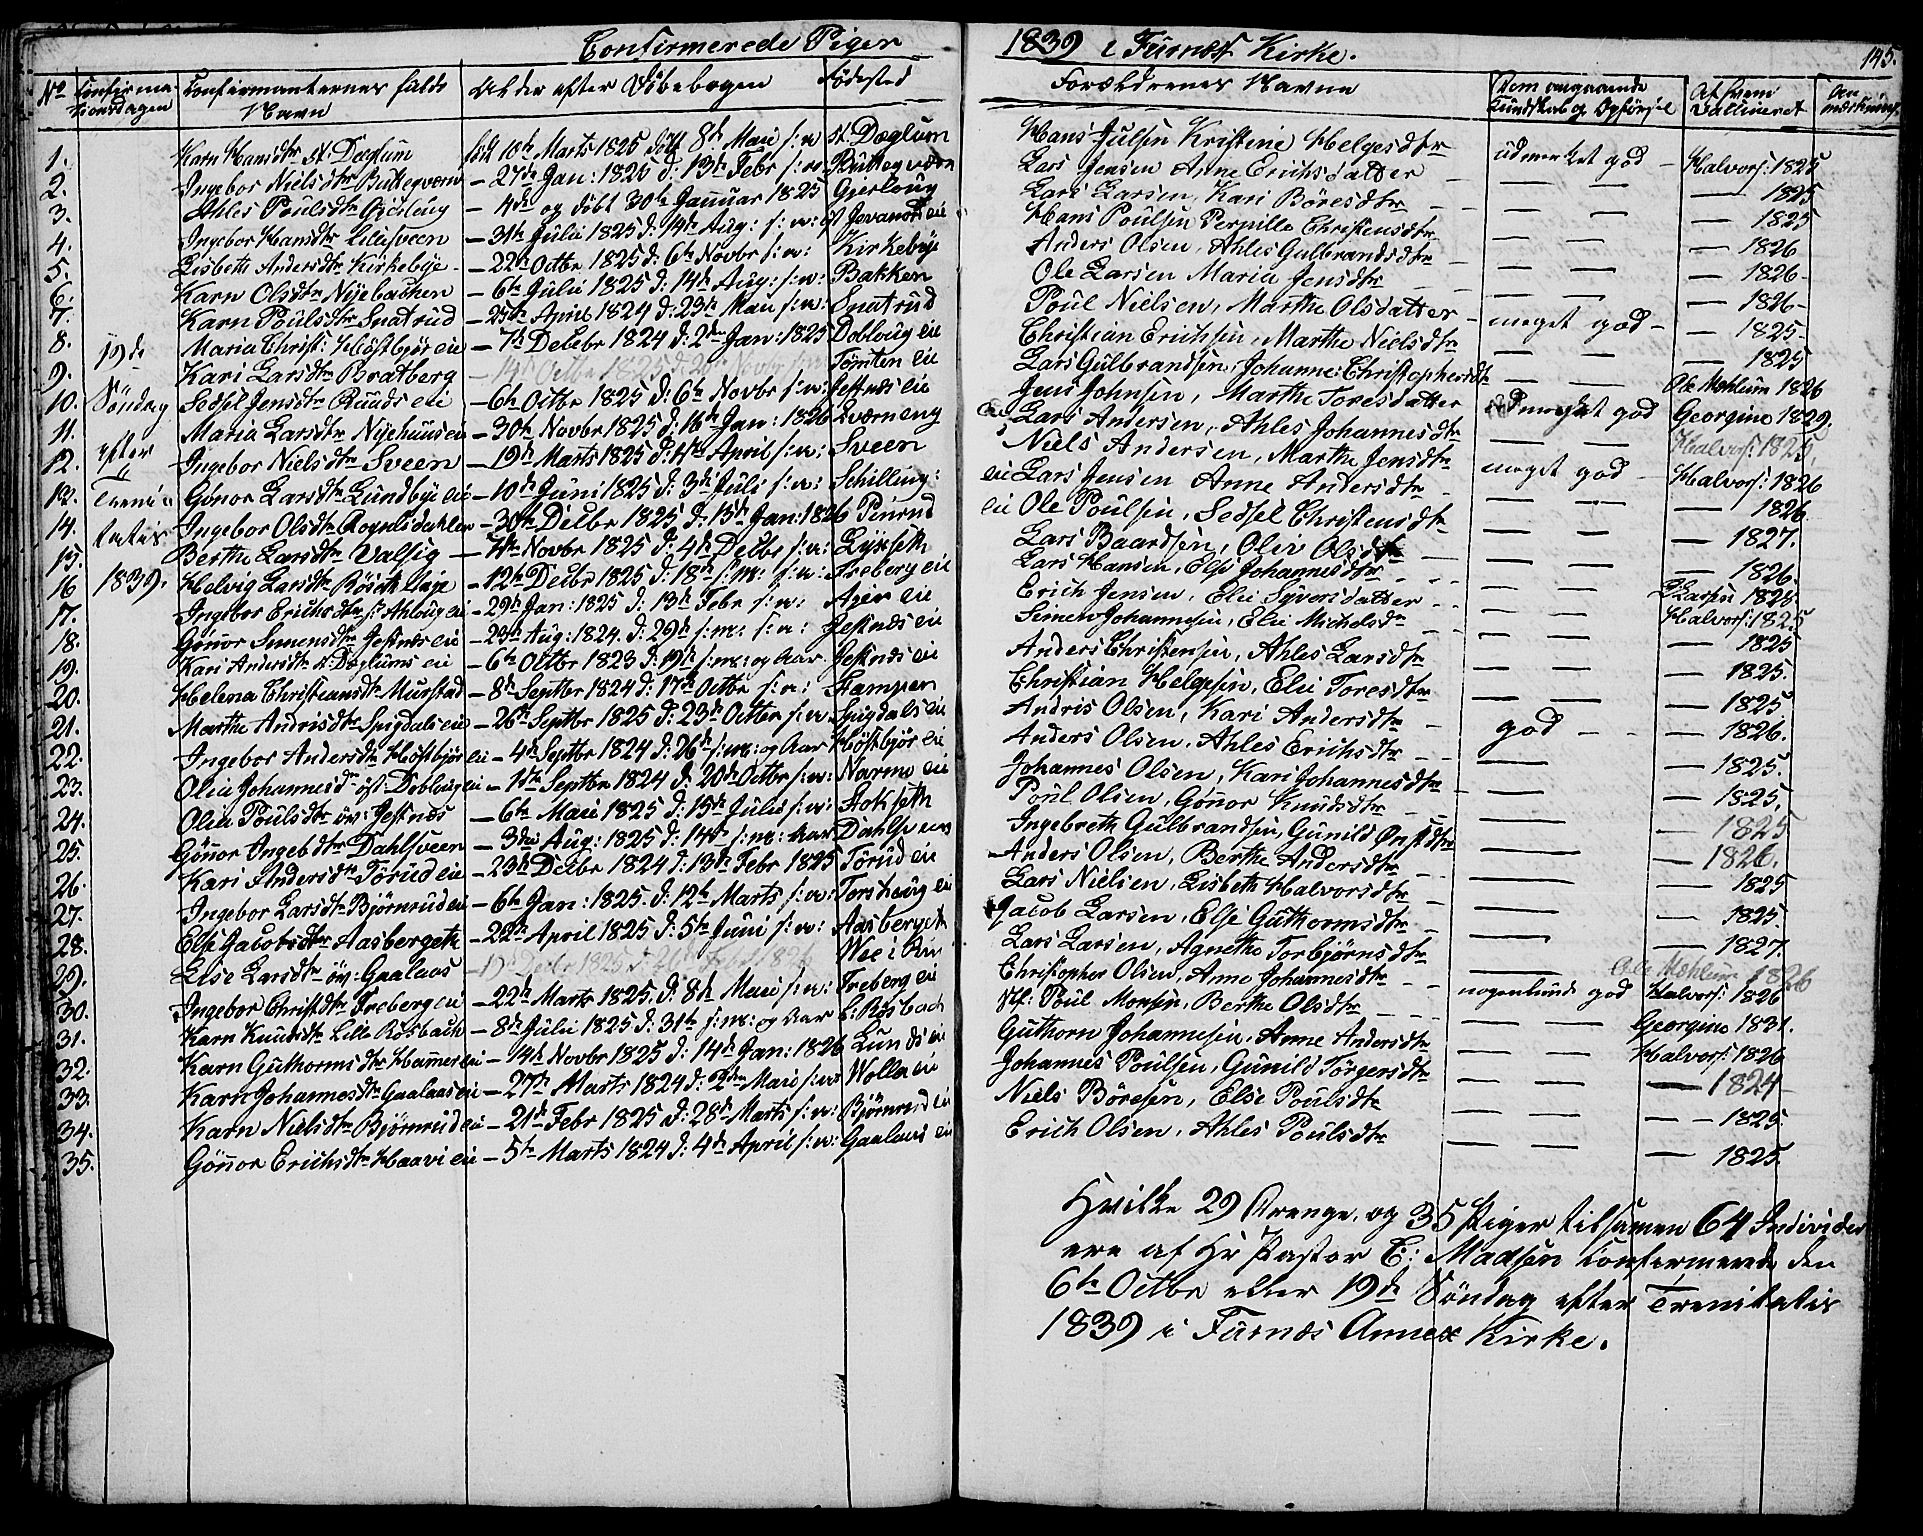 Confirmerede Piger 1839 i Furnæs Kirke. 145.
No Confirma-tionsdagen Confirmanternes fulde Navn Alder efter Döbebogen Födested Forældrenes Navne Dom angaaende Kundskab og Opförsel Af hvem Vaccineret An-mærkning
1. Karn Hansdtr st: Dæglum föd 10de Marts 1825 döbt 8de Maii s: a: st: Dæglum Hans Julsen Kristine Helgesdtr udmerket god Halvors: 1825
2. Ingebor Nielsdtr Butteqvern – 27de Jan: 1825 d: 13de Febr s: a: Butteqværn Lars Jensen Anne Erichsdatter — — — 1825
3. Ahles Poulsdtr Gjerloug – 4de og döbt 30te Januar 1825 Gjerloug Lars Larsen, Kari Böresdtr — — — 1825
4. Ingebor Hansdtr Lillesveen – 31te Julii 1825 d: 14de Aug: s: a: Jevanord eie Hans Poulsen Pernille Christensdtr — — — 1826
5. Lisbeth Andersdtr Kirkebye – 22de Octbr 1825 d: 6te Novbr s: a: Kirkebye Anders Olsen, Ahles Gulbrandsdtr — — — 1826
6. Karn Olsdtr Nyebacken – 6te Julii 1825 d: 14de Aug: s: a: Bakken Ole Larsen Maria Jensdtr — — — 1826
7. Karn Poulsdtr Snatrud – 25de April 1824 d: 23de Maii s: a: Snatrud Poul Nielsen, Marthe Olsdatter meget god — 1825
8. Maria Christ: Höstbjör eie – 7de Decbr 1824 d: 2den Jan: 1825 Dobloug eie Christian Erichsen, Marthe Nielsdtr — — — 1825
9. 19de Kari Larsdtr Bratberg – 14de Octbr 1825 d: 20de Novbr Tömten eie Lars Gulbrandsen, Johanne Christophersdtr — — Ole Mehlum 1826
10. Söndag Sedsel Jensdtr Ruuds eie – 6te Octbr 1825 d: 6te Novbr s: a: Jessnæs eie Jens Johnsen, Marthe Toresdatter udmerket god Georgine 1829.
11. Maria Larsdtr Nyehuus eie – 30te Novbr 1825 d: 16de Jan: 1826 Qverneng eie Lars Andersen, Ahles Johannesdtr — — Halvors: 1825
12. efter Ingebor Nielsdtr Sveen – 19de Marts 1825 d: 4de April s: a: Sveen Niels Andersen, Marthe Jensdtr meget god Halvors: 1826
12. Treni- Gönor Larsdtr Lundbye eie – 10de Juni 1825 d: 3de Juli s: a: Schilling: eie Lars Jensen Anne Andersdtr — — — 1826
14. tatis Ingebor Olsdtr Rognlidahlen – 30te Decbr 1825 d: 15de Jan: 1826 Pinrud eie Ole Poulsen, Sedsel Christensdtr — — — 1827.
15. Berthe Larsdtr Valsig – 4de Novbr 1825 d: 4de Decbr s: a: Lykseth Lars Baardsen, Oliv Olsdtr — — — 1826.
16 1839. Helvig Larsdtr – 12te Decbr 1825 d: 18de s: m: s: a: Freberg eie Lars Hansen, Else Johannesdtr — — Larsen 1828
17. Ingebor Erichsdtr s: Ahloug eie – 29de Jan: 1825 d: 13de Febr s: a: Ajer eie Erich Jensen, Elie Syversdatter — — Halvors: 1825
18. Gönor Simensdtr Jessnæs eie – 23de Aug: 1824. d: 29de s: m: s: a: Jessnæs eie Simen Johannesen, Elie Michelsdtr — — — 1825
19. Kari Andersdtr st: Dæglums eie – 6te Octbr 1823 d: 19de s: m: og Aar Jessnæs eie Anders Christensen, Ahles Larsdtr — — — 1825.
20. Helena Christiansdtr Murstad – 8de Septbr 1824 d: 17de Octbr s: a: Stampen Christian Helgesen, Elie Toresdtr — — — 1825
21. Marthe Andrisdtr Spigdals eie – 26de Septbr 1825 d: 23de Octbr s: a: Spigdals eie Andris Olsen, Kari Andersdtr god — 1826.
22. Ingebor Andersdtr Höstbjör eie – 4de Septbr 1824 d: 26de s: m: og Aar Höstbjör eie Anders Olsen, Ahles Erichsdtr — — 1825.
23. Olia Johannesdtr öst Dobloug eie – 1ste Septbr 1824 d: 20de Octbr s: a: Narmo eie Johannes Olsen, Kari Johannesdtr — — 1825,
24. Olia Poulsdtr öv: Jessnæs – 6te Maii 1825 d: 15de Julii s: a: Stokseth Poul Olsen, Gönnor Knudsdtr — — 1825
25. Gönnor Ingebdtr Dahlsveen – 3die Aug: 1825 d: 14de s: m: Aar Dahlsveen Ingebreth Gulbrandsen, Gunild Önstdtr — — 1826.
26. Kari Andersdtr Törud eie – 23de Decbr 1824 d: 13de Febr 1825 Törud eie Anders Olsen, Berthe Andersdtr — — 1825
27. Ingebor Larsdtr Björnrud eie – 6te Jan: 1825. d: 12te Marts s: a: Torshoug eie Lars Nielsen, Lisbeth Halvorsdtr — — 1825.
28. Else Jacobsdtr Aasbergeth – 22de April 1825 d: 5te Juni s: a: Aasbergeth Jacob Larsen, Else Guthormsdtr — — 1827.
29. Lise Larsdtr öv: Gaalaas – 19de Decbr 1825 d: 26de Febr 1826 Wee i Rin Lars Larsen, Agnethe Torbjörnsdtr — Ole Mehlum 1826
30. Ingebor Christdtr Freberg eie – 22de Marts 1825. d: 8de Maii s: a: Freberg eie Christopher Olsen, Anne Johannesdtr nogenlunde god Halvors: 1826
31. Karn Knudsdtr Lille Rösbach – 8de Julii 1825 d: 31te s: m: og Aar L: Rösbach Poul Monsen, Berthe Olsdtr — — Georgine 1831.
32. Karn Guthormsdtr Hammer eie – 14de Novbr 1825 d: 14de Jan: 1826 Lunds eie Guthorn Johannesen, Anne Andersdtr — — Halvors: 1826
33. Karn Johannesdtr Gaalaas eie – 27de Marts 1824 d: 2den Maii s: a: Wolla eie Johannes Poulsen, Gunild Törgersdtr — — — 1824
34. Karn Nielsdtr Björnrud eie – 21de Febr 1825 d: 28de Marts s: a: Björnrud eie Niels Böresen, Else Poulsdtr — — — 1825
35. Gönnor Erichsdtr Haavi eie – 5te Marts 1824 d: 4de April s: a: Gaalaas eie Erich Olsen, Ahles Poulsdtr — — — 1825.
Hvilke 29 Drenge, og 35 Piger tilsamen 64 Individer
ere af Hr Pastor E: Madsen Confirmerede den
6te Octbr eller 19de Söndag efter Trenitatis
1839 i Furnæs Annex Kirke.